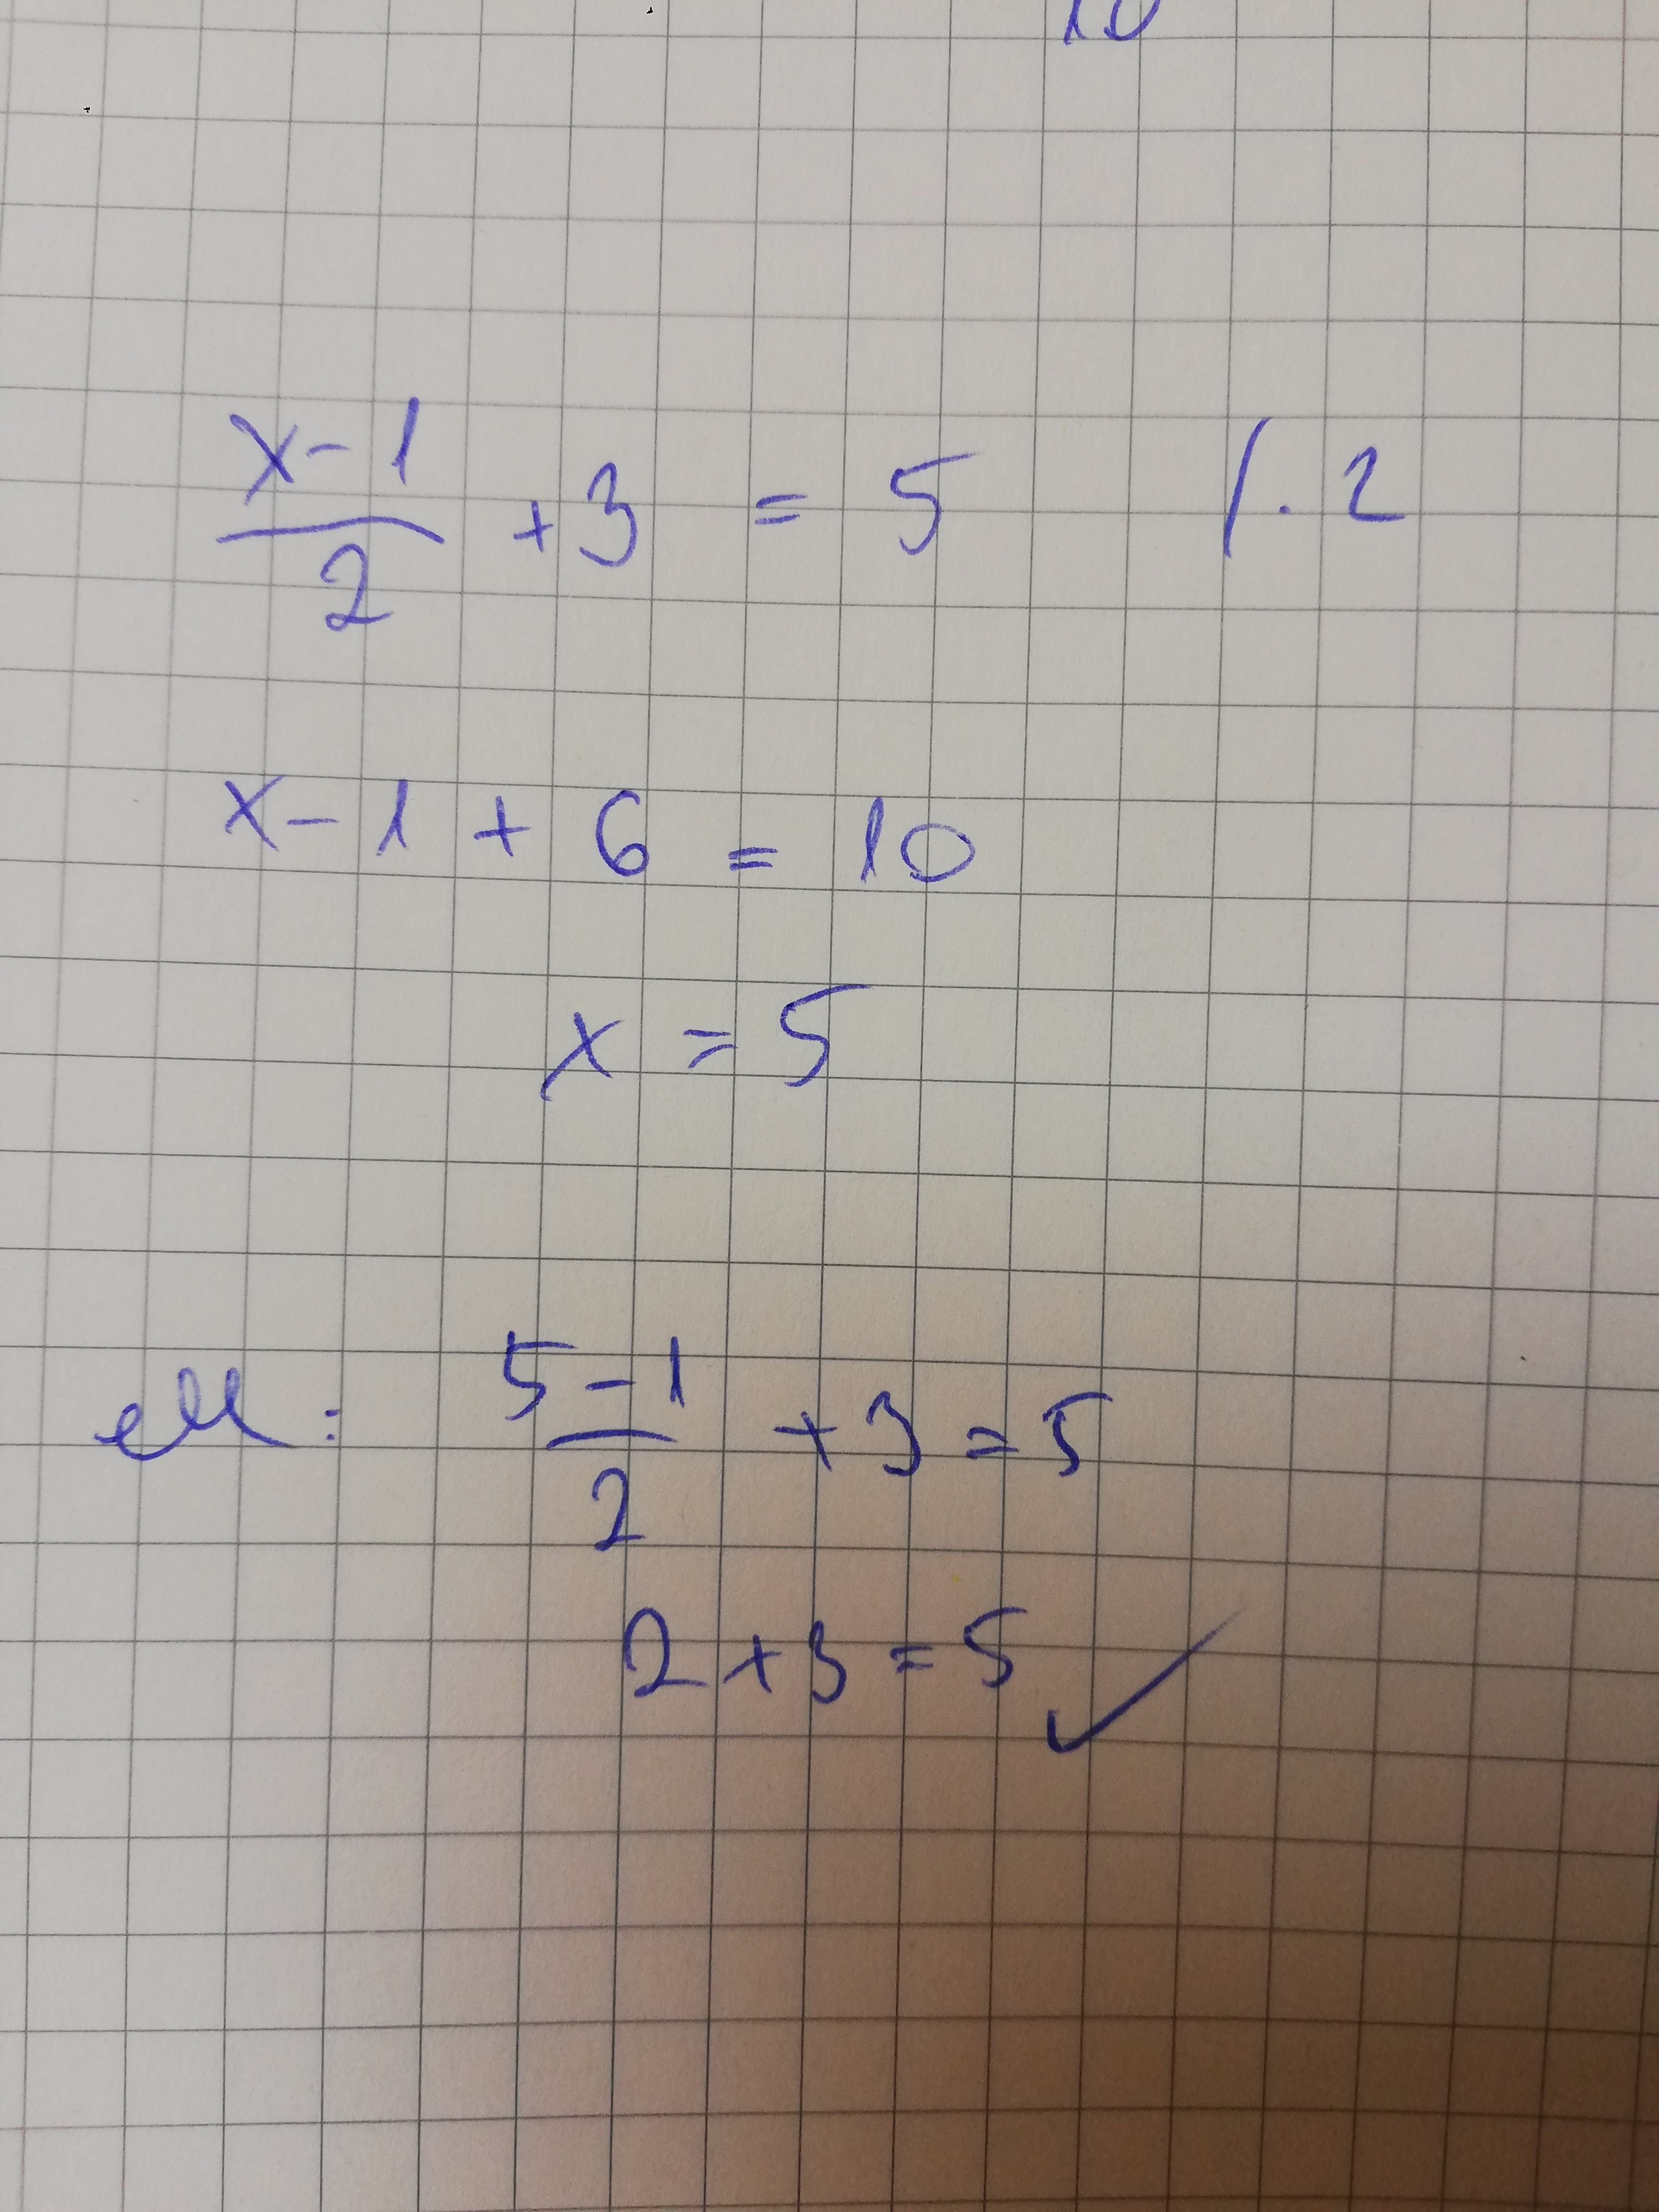 10
(x-1)/2 + 3 = 5 /. 2
x - 1 + 6 = 10
x = 5
ell: (5-1)/2 + 3 = 5
2 + 3 = 5 ✓